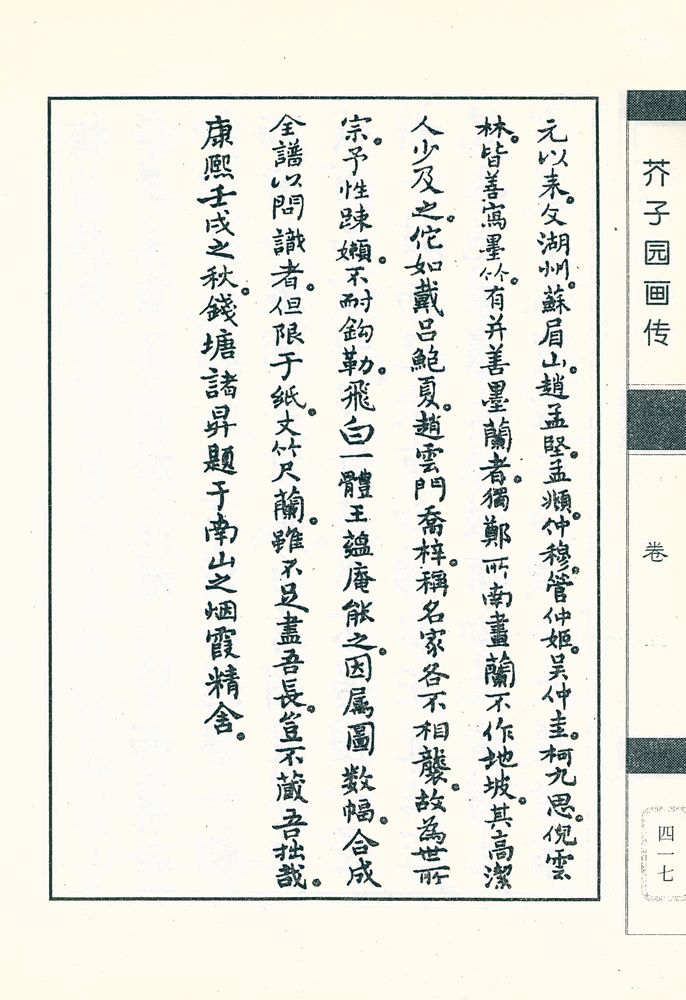 元以来。文湖州。蘇眉山。趙孟堅。孟頫。仲穆。管仲姬。吴仲圭。柯九思。倪雲
林。皆善寫墨竹。有并善墨蘭者。獨鄭所南畫蘭不作地坡。其高潔
人少及之。佗如戴吕鮑夏。趙雲門喬梓。稱名家各不相襲。故為世所
宗。予性踈嬾。不耐鈎勒。飛白一體王蘊庵能之。因屬圖数幅。合成
全譜以問識者。但限于纸。丈竹尺蘭。雖不足盡吾長。豈不蔵吾拙哉。
康熙壬戌之秋。錢塘諸昇題于南山之烟霞精舍。
芥子园画传
卷
一
四一七